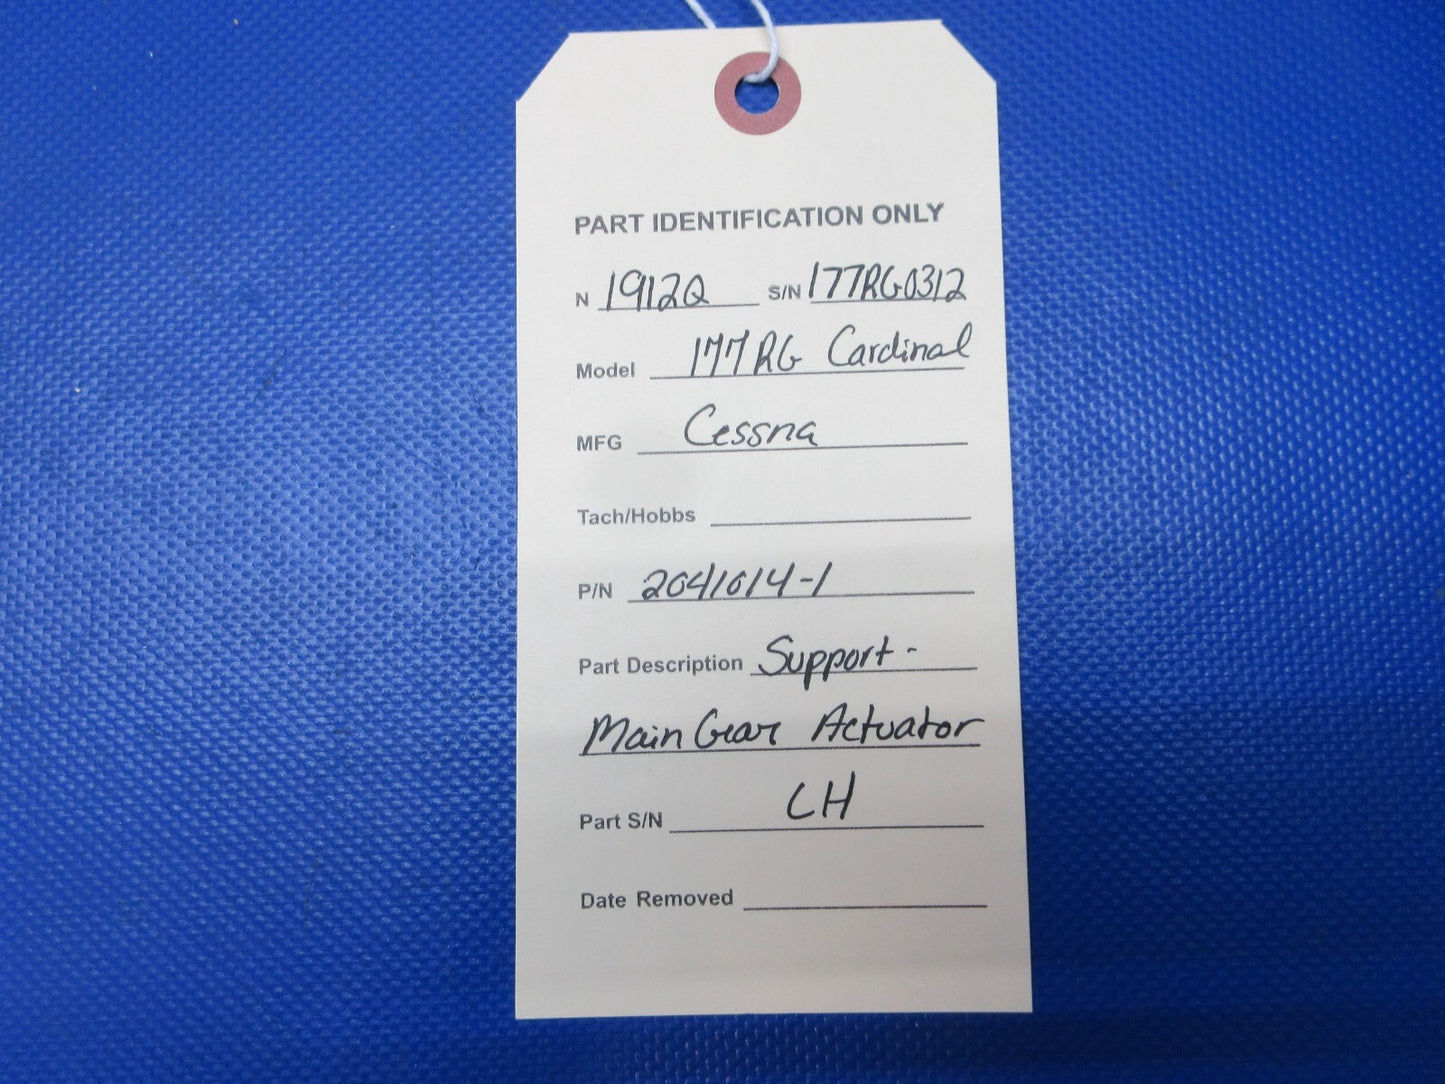 PART IDENTIFICATION ONLY
N 1912Q S/N 177RG0312
Model 177RG Cardinal
MFG Cessna
Tach/Hobbs
P/N 2041014-1
Part Description Support -
Main Gear Actuator
Part S/N LH
Date Removed